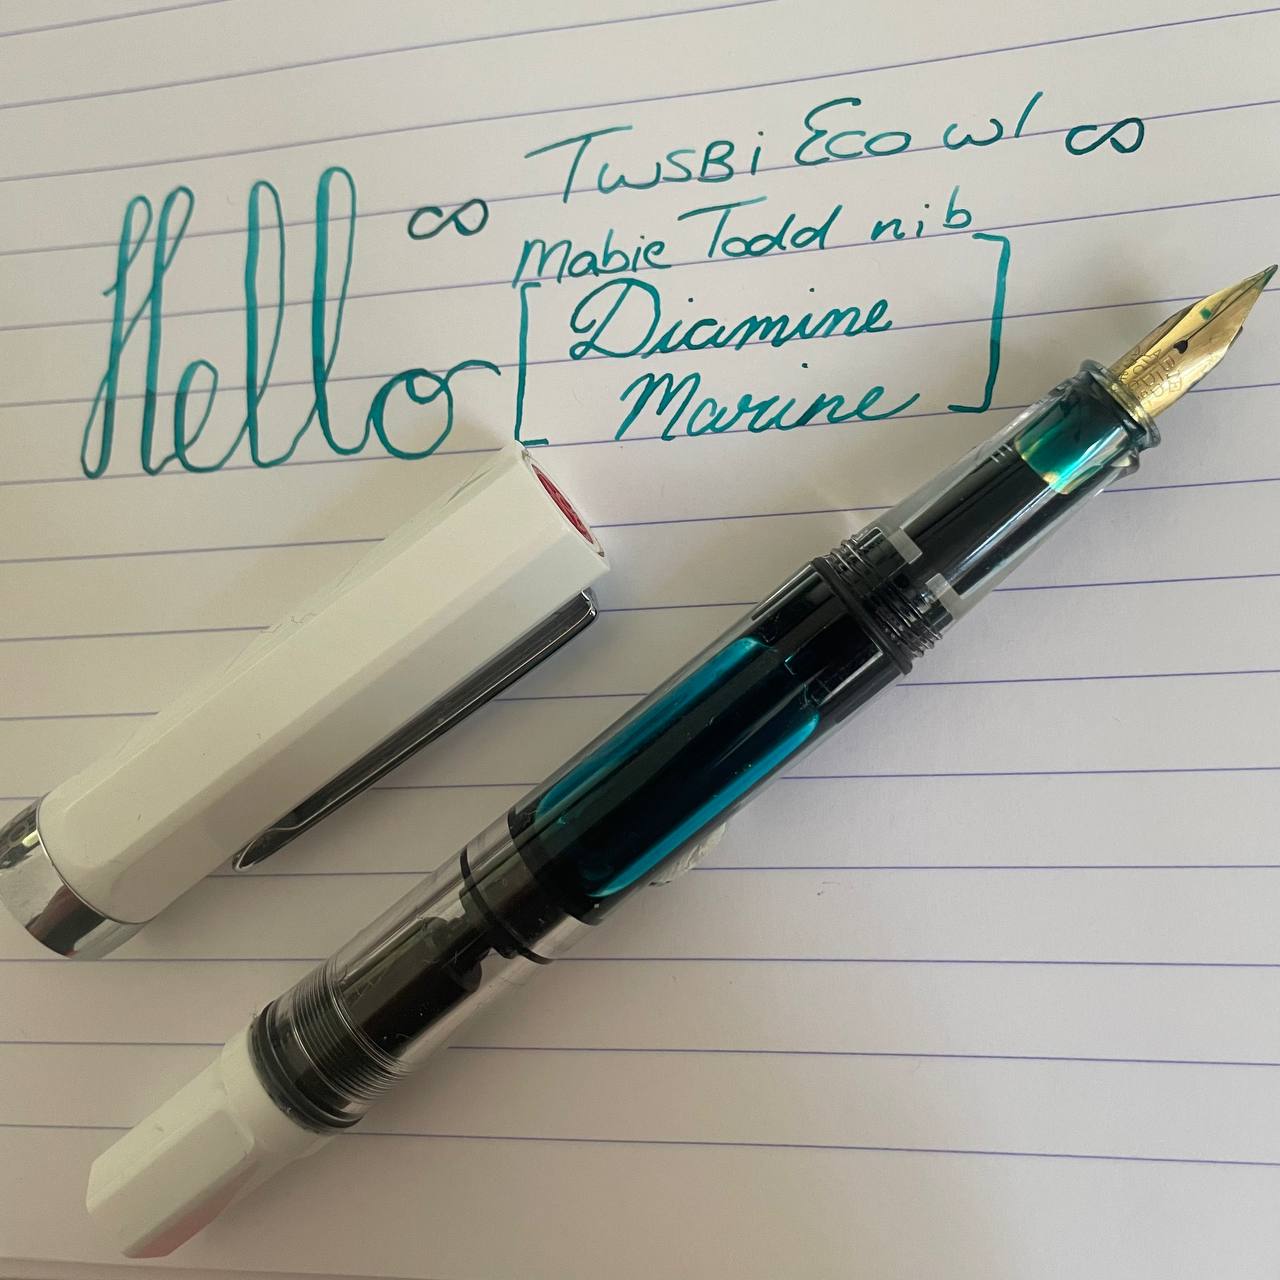 Hello ∞ TWSBi Eco w/ ∞
Mabie Todd nib
[Diamine
Marine]